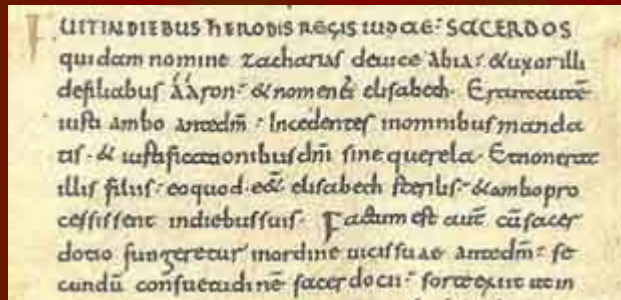 FUIT IN DIEBUS hERODIS REGIS IUDAE: SACERDOS
quidam nomine zacharias deuice abia: &uxor illi
defiliabus ááron: & nomen ei elisabeth. Erant aute
iusti ambo ante dm̄: Incedentes inomnibus manda
tis. & iustificationibus dn̄i sine querela. Et non erat
illis filius: eoquod. eēt elisabeth sterilis: &ambo pro
cessissent indiebus suis. Factum est aut̄ cū sacer
dotio fungeretur inordine uicis suae ante dm̄: se
cundū consuetudinē sacerdotii: sorte exiit utin